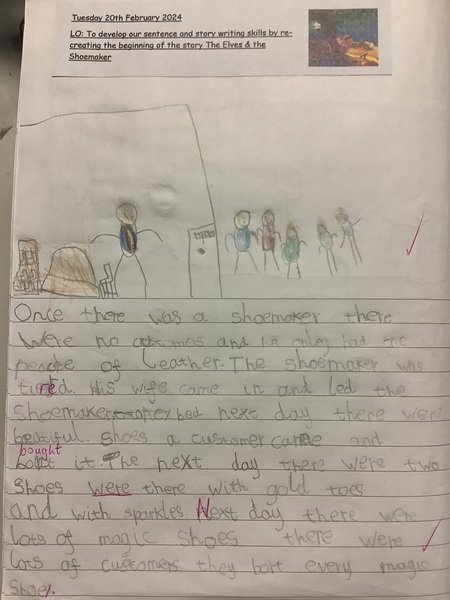 Tuesday 20th February 2024
LO: To develop our sentence and story writing skills by re-
creating the beginning of the story The Elves & the
Shoemaker
Once there was a shoemaker there
were no and he only had one
of Leather. The shoemaker was
tired. His wife came in and led the
Shoemaker bed next day there were
beautiful. Shoes a customer came and
bought
it. The next day there were two
Shoes were there with gold toes
and with sparkles. Next day there were
lots of magic shoes there were
lots of customers they bort every magic
Shoe.